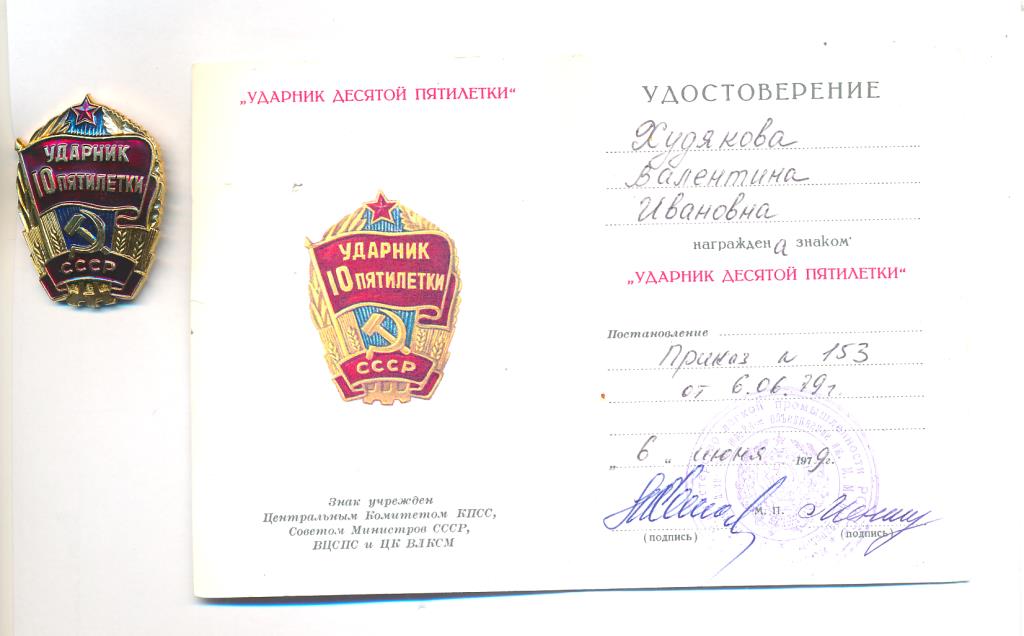 УДАРНИК
10 ПЯТИЛЕТКИ
СССР
„УДАРНИК ДЕСЯТОЙ ПЯТИЛЕТКИ“
УДАРНИК
10 ПЯТИЛЕТКИ
СССР
Знак учрежден
Центральным Комитетом КПСС,
Советом Министров СССР,
ВЦСПС и ЦК ВЛКСМ
УДОСТОВЕРЕНИЕ
Худякова
Валентина
Ивановна
награжден а знаком
„УДАРНИК ДЕСЯТОЙ ПЯТИЛЕТКИ“
Постановление
Приказ N 153
от 6.06.79г.
„ 6 „ июня 1979г.
М. П.
(подпись) (подпись)
легкой промышленности